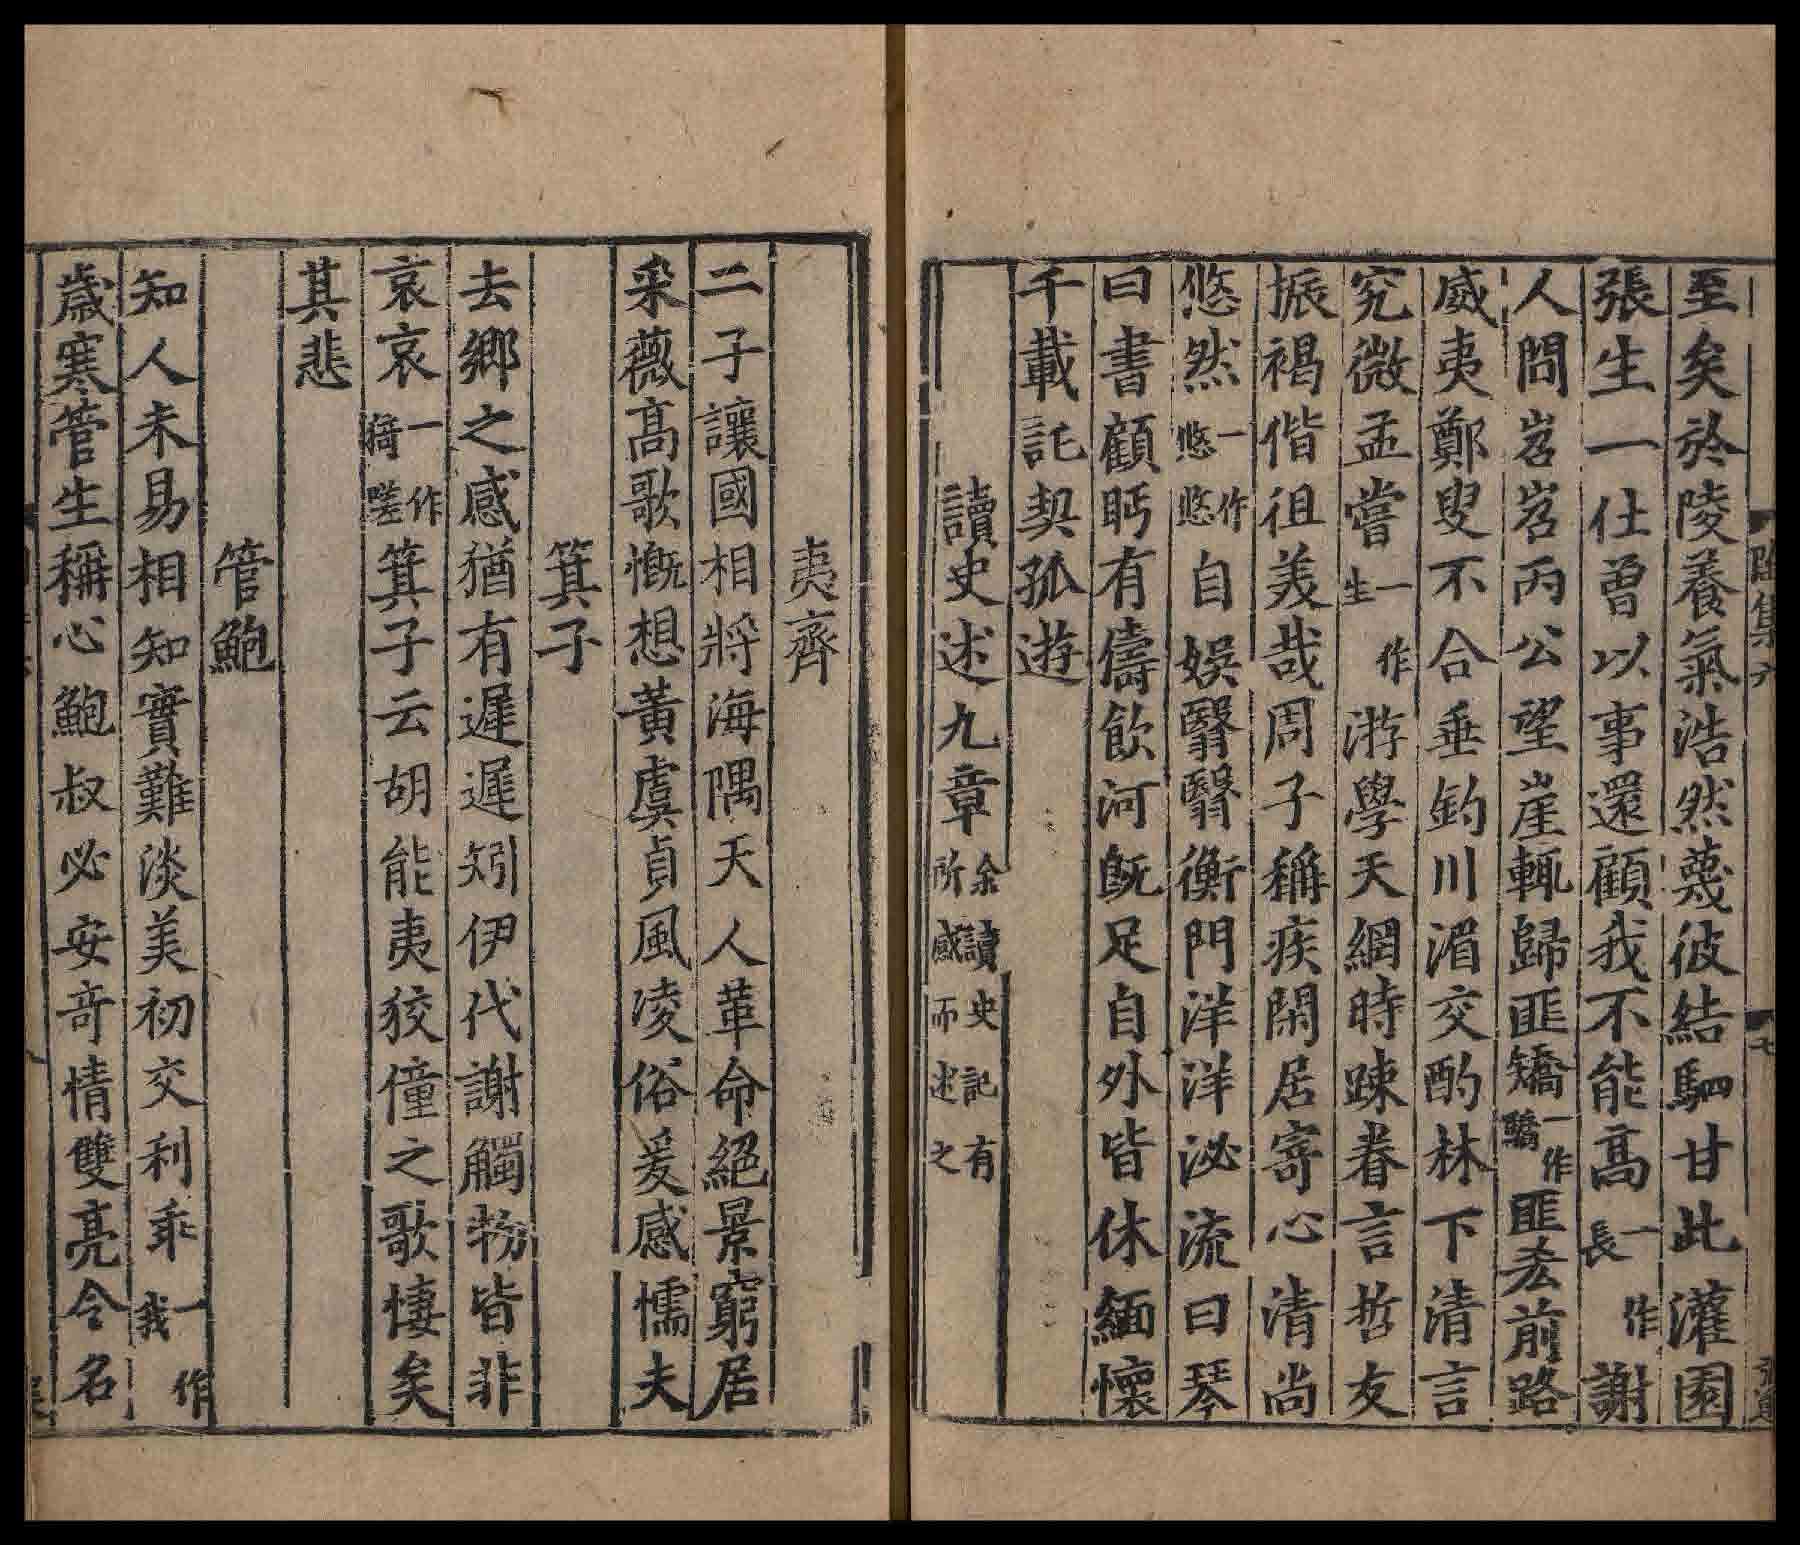 至矣於陵養氣浩然蔑彼結駟甘此灌園
張生一仕曾以事還顧我不能高一作長謝
人間岧岧丙公望崖輒歸匪矯一作驕匪吝前路
威夷鄭叟不合垂釣川湄交酌林下清言
究微孟嘗一作生游學天網時踈眷言哲友
振褐偕徂美哉周子稱疾閑居寄心清尚
悠然一作悠悠自娛翳翳衡門洋洋泌流曰琴
曰書顧眄有儔飲河旣足自外皆休緬懷
千載託契孤遊
讀史述九章余讀史記有所感而述之
夷齊
二子讓國相將海隅天人革命絕景窮居
采薇高歌慨想黃虞貞風凌俗爰感懦夫
箕子
去鄉之感猶有遲遲矧伊代謝觸物皆非
哀哀一作猗嗟箕子云胡能夷狡僮之歌悽矣
其悲
管鮑
知人未易相知實難淡美初交利乖一作我
歲寒管生稱心鮑叔必安奇情雙亮令名